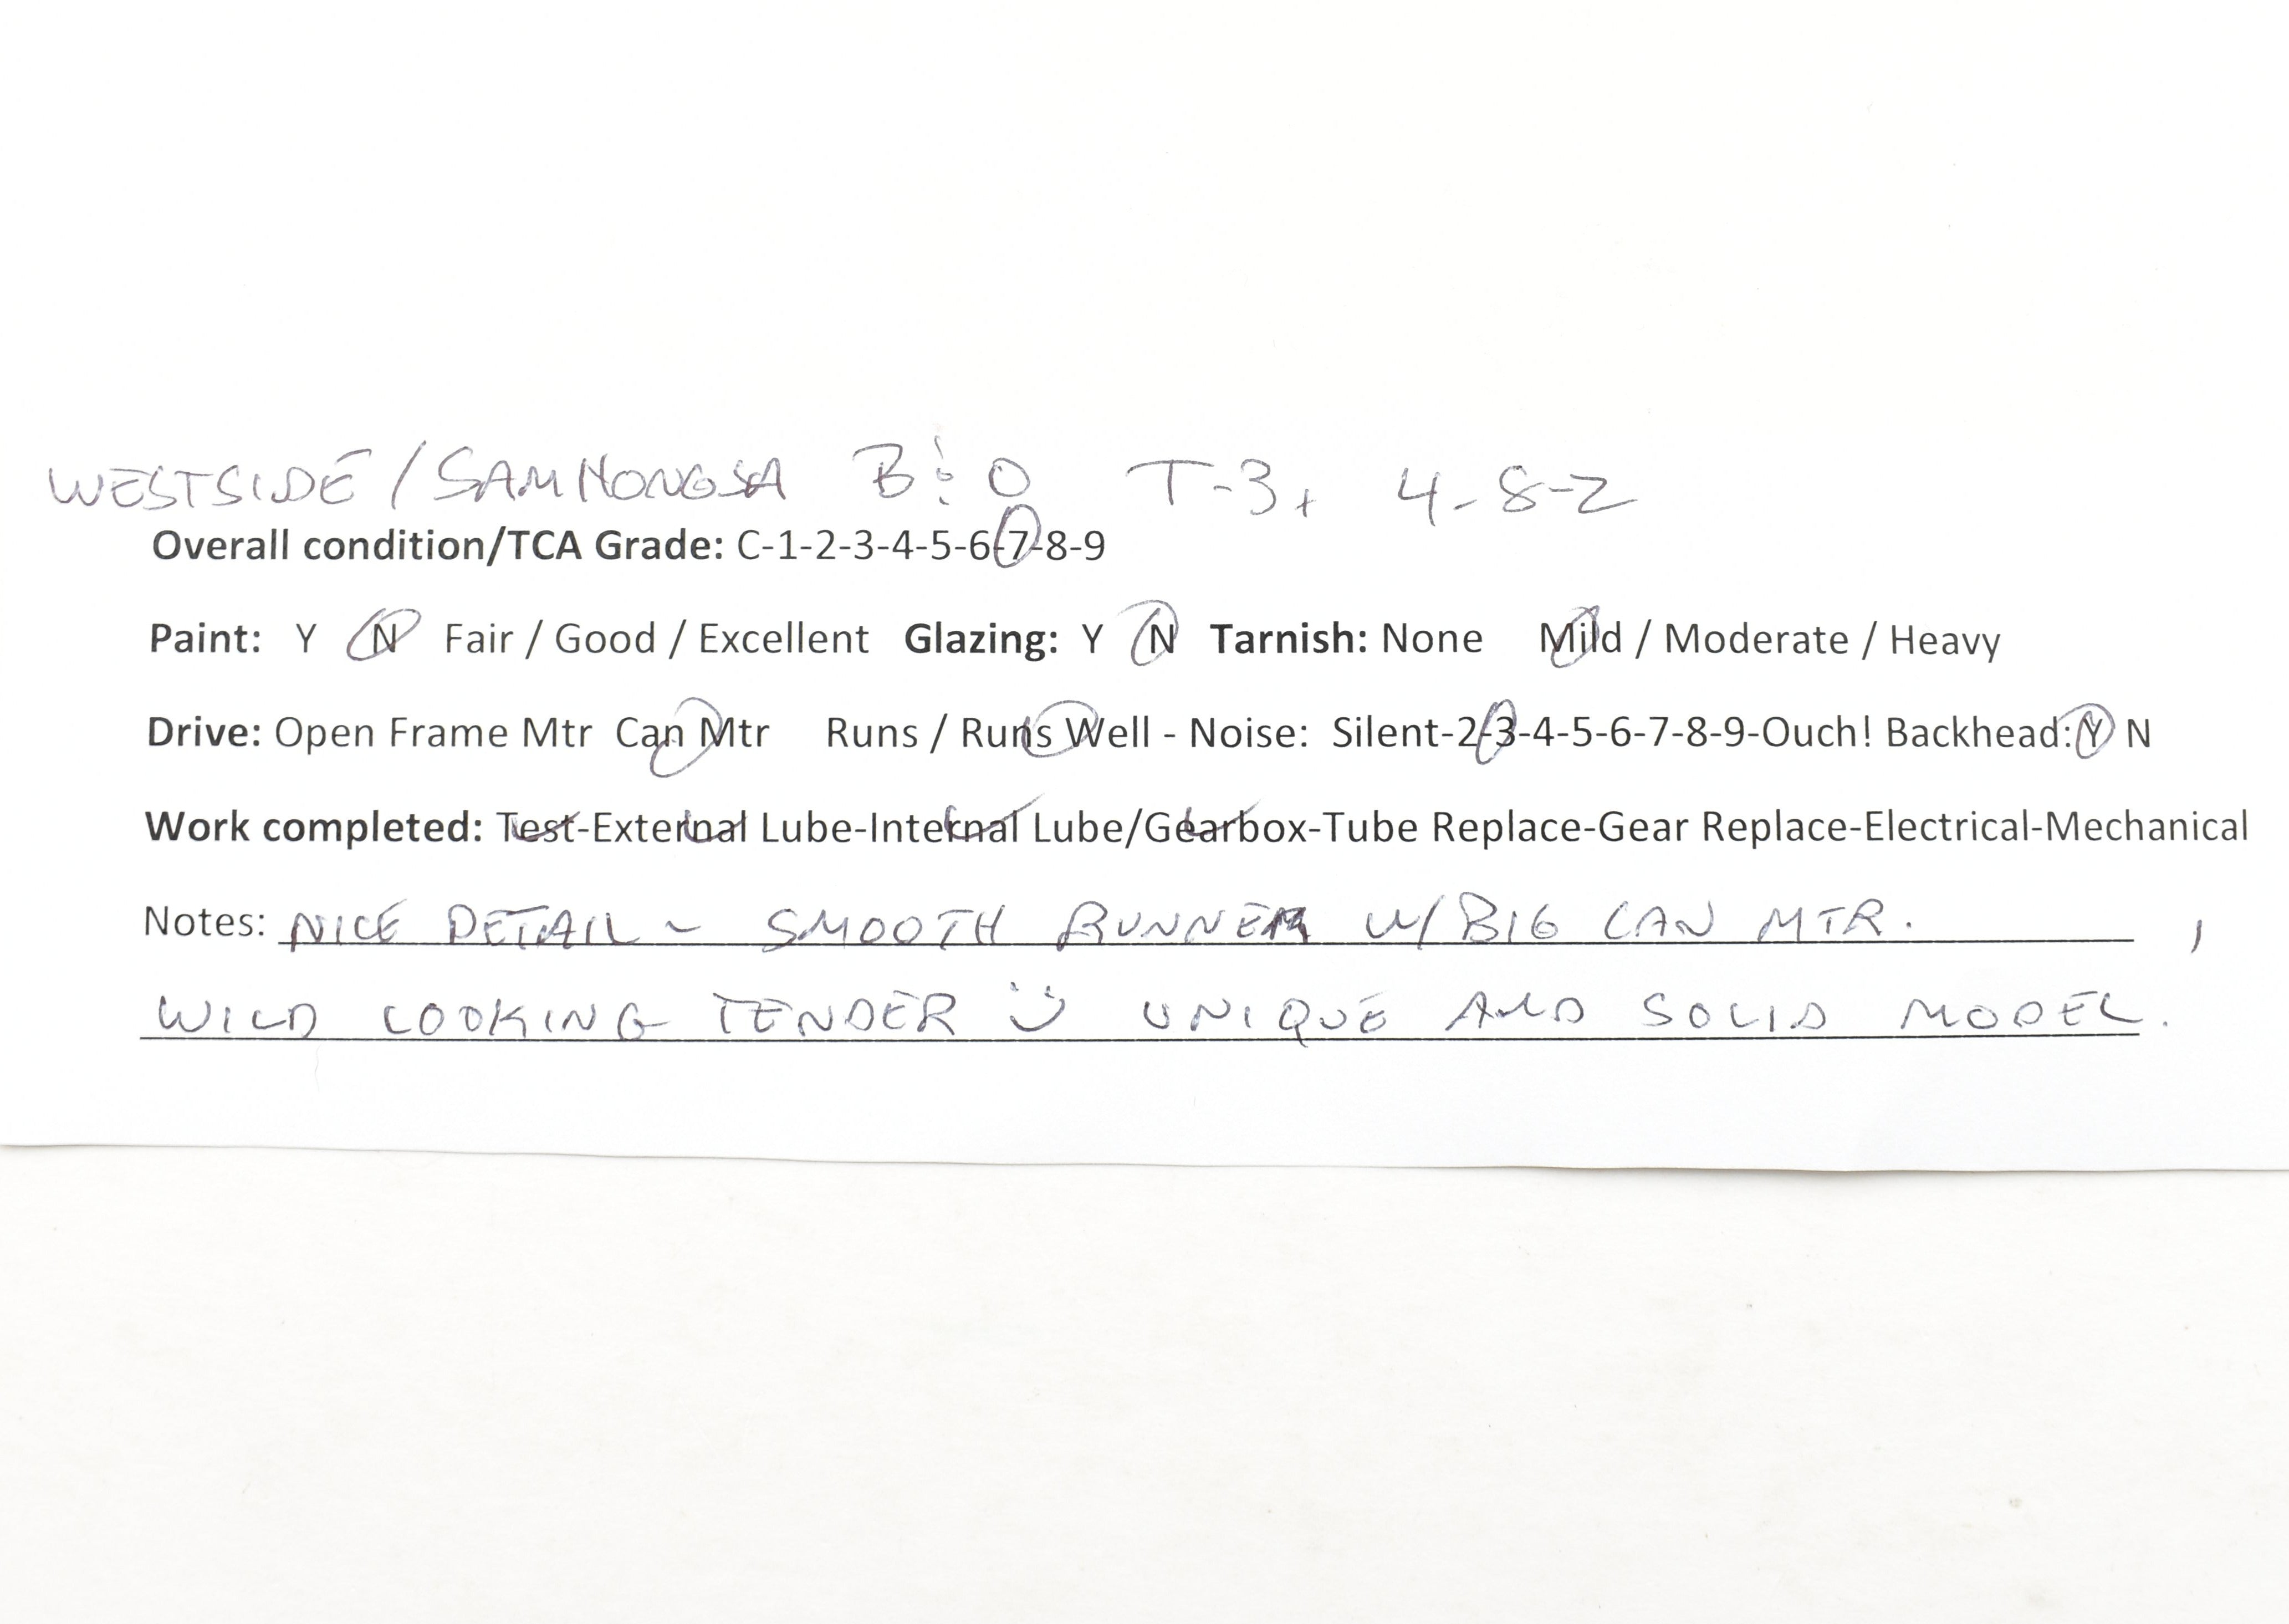 WESTSIDE / SAMHONGSA B&O T-3+ 4-8-2
Overall condition/TCA Grade: C-1-2-3-4-5-6-7-8-9
Paint: Y N Fair / Good / Excellent Glazing: Y N Tarnish: None Mild / Moderate / Heavy
Drive: Open Frame Mtr Can Mtr Runs / Runs Well - Noise: Silent-2-3-4-5-6-7-8-9-Ouch! Backhead: Y N
Work completed: Test-External Lube-Internal Lube/Gearbox-Tube Replace-Gear Replace-Electrical-Mechanical
Notes: NICE DETAIL ~ SMOOTH RUNNER W/ BIG CAN MTR. ,
WILD LOOKING TENDER :) UNIQUE AND SOLID MODEL.